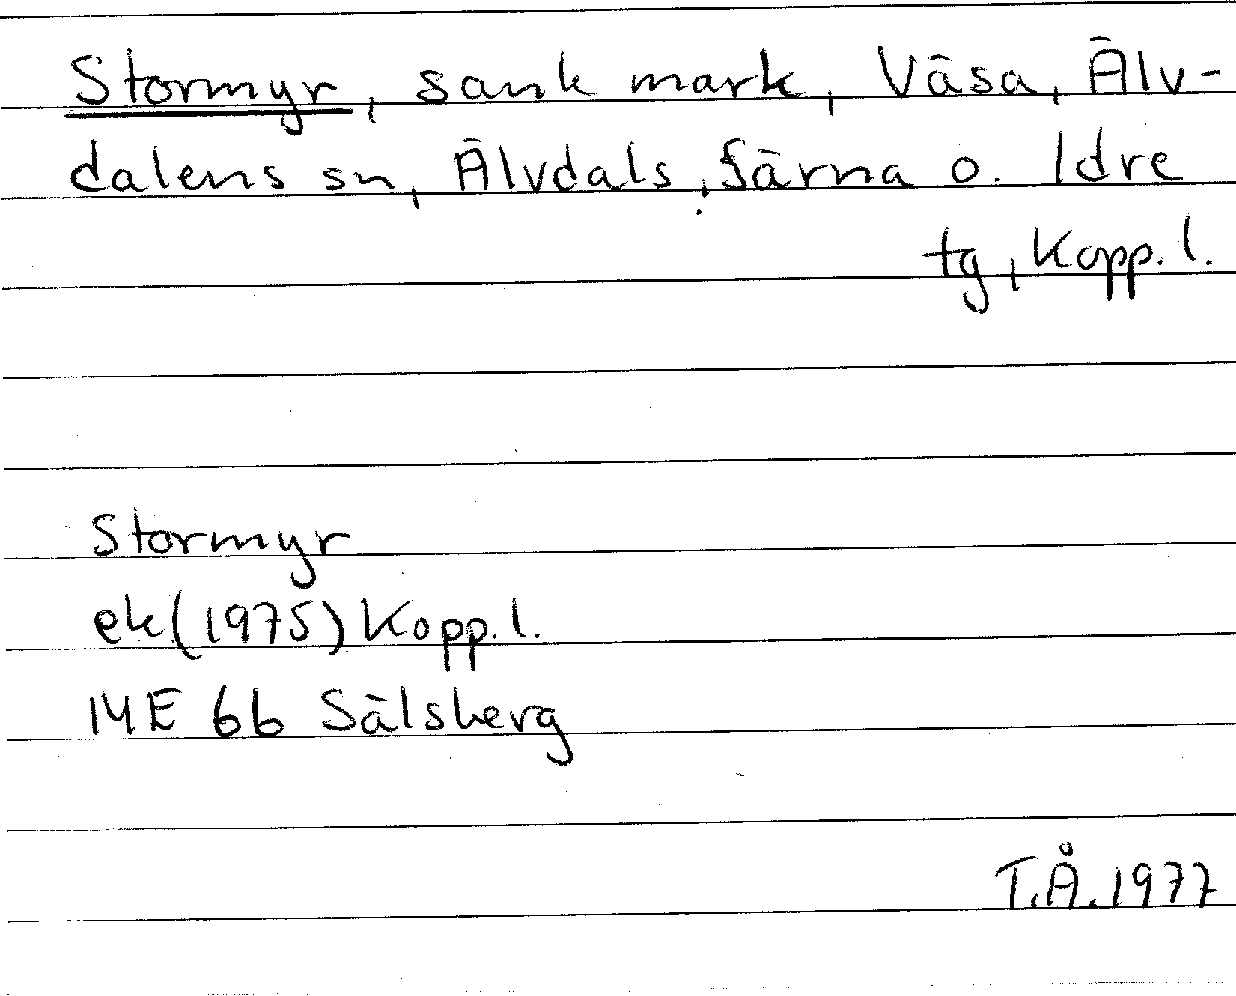 Stormyr, sank mark, Väsa, Älv-
dalens sn, Älvdals, Särna o. Idre
tg, Kopp. l.
Stormyr
ek (1975) Kopp. l.
14E 6b Sälsberg
T.Å. 1977